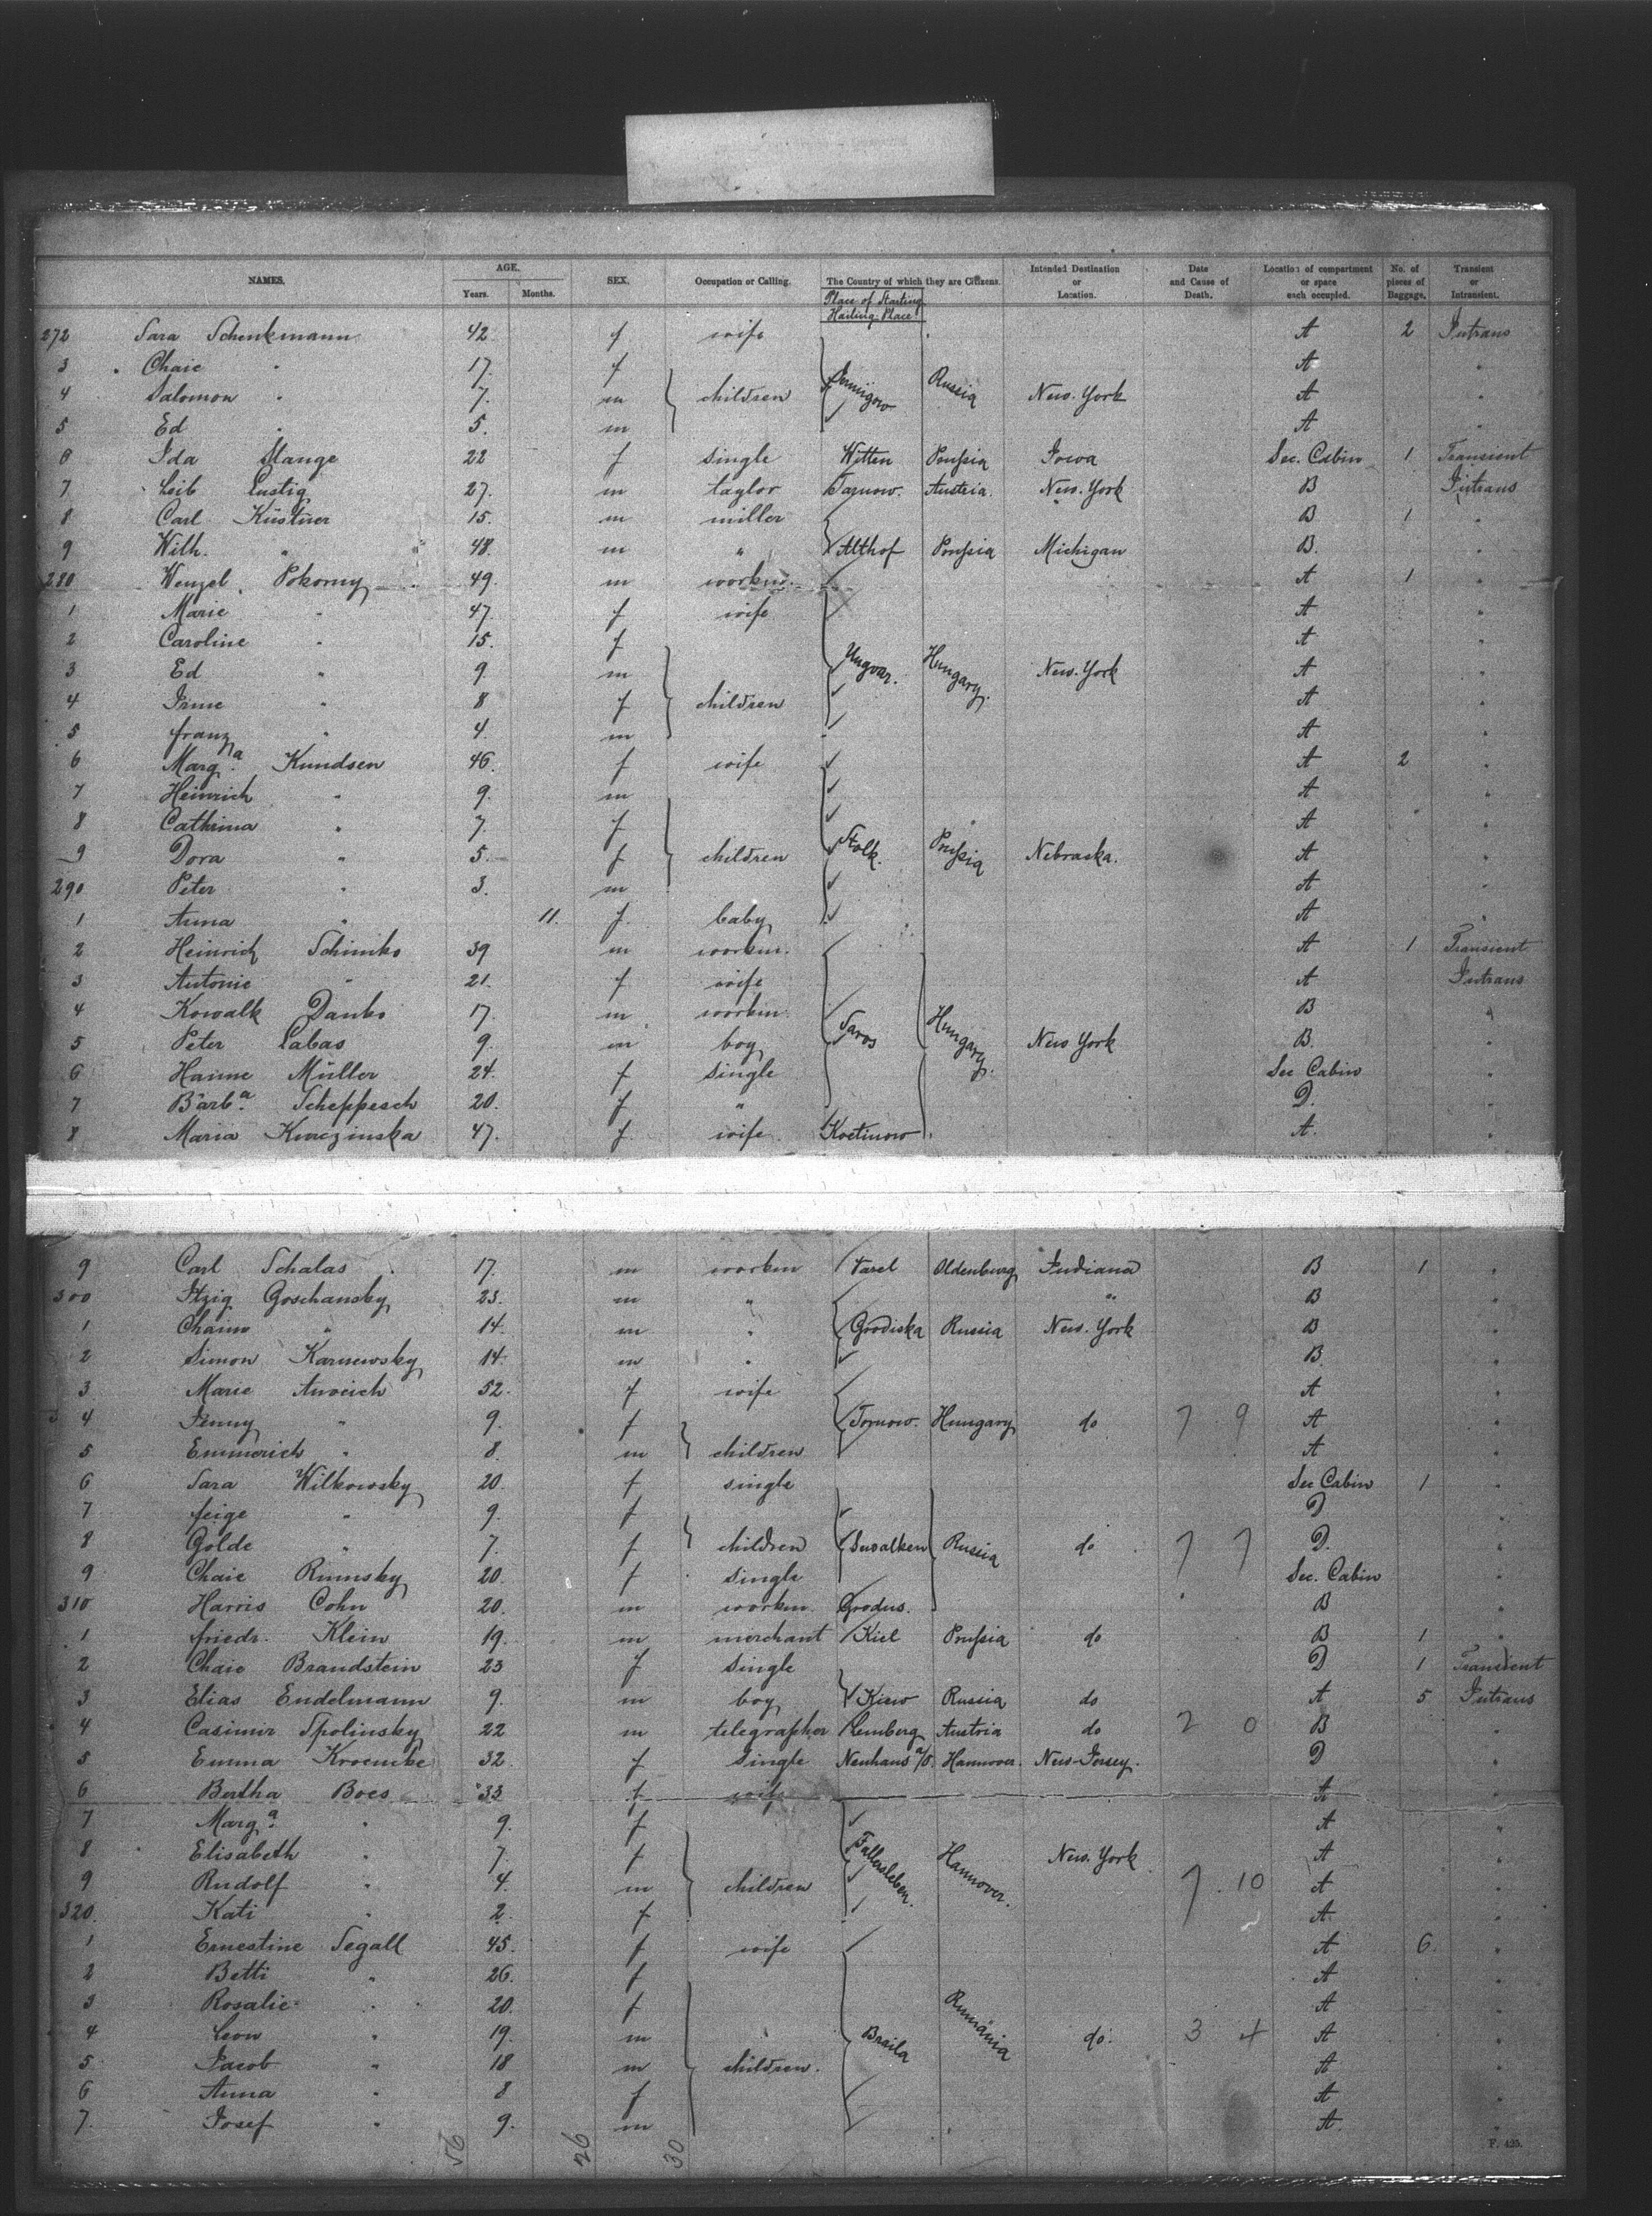 NAMES. AGE. Years. Months. SEX. Occupation or Calling. The Country of which they are Citizens. Intended Destination or Location. Date and Cause of Death. Location of compartment or space each occupied. No. of pieces of Baggage. Transient or Intransient.
Place of Starting
Hailing Place
272 Sara Schenkmann 42. f wife A 2 Intrans
3 Chaie " 17. f A "
4 Salomon " 7. m children Russia New-York A "
5 Ed " 5. m A "
6 Ida Stange 22 f single Witten Prußia Iowa Sec. Cabin 1 Transient
7 Leib Lustig 27. m taylor Tarnow. Austria. New-York B Intrans
8 Carl Küstner 15. m miller B 1 "
9 Wilh. " 48. m " Althof Prußia Michigan B. "
280 Wenzel Pokorny 49. m workm. A 1 "
1 Marie " 47. f wife A "
2 Caroline " 15. f A "
3 Ed " 9. m Ungvar. Hungary. New-York A "
4 Irme " 8 f children A "
5 franz " 4. m A "
6 Marg.a Knudsen 46. f wife A 2 "
7 Heinrich " 9. m A "
8 Cathrina " 7. f A "
9 Dora " 5. f children Stolk. Prußia Nebraska. A "
290 Peter " 3. m A "
1 Anna " 11. f baby A "
2 Heinrich Schimko 39 m workm. A 1 Transient
3 Antonie " 21. f wife A Intrans
4 Kowalk Danko 17. m workm. B "
5 Peter Labas 9. m boy Saros Hungary. New York B. "
6 Hanne Müller 24. f single Sec Cabin "
7 Barb.a Scheppesch 20. f " D. "
8 Maria 47. f wife. A. "
9 Carl Schalas 17. m workm Varel Oldenburg Indiana B 1 "
300 Itzig Goschansky 23. m " " B "
1 Chaim " 14. m " Grodiska Russia New-York B
2 Simon Karnewsky 14. m " B "
3 Marie 52. f wife A "
4 Jenny " 9. f Tornow. Hungary do 7 9 A "
5 Emmerich " 8. m children A "
6 Sara Wilkowsky 20. f single Sec Cabin 1 "
7 feige " 9. f D "
8 Golde " 7. f children Suwalken Russia do 7 7 D. "
9 Chaie Rumsky 20. f single Sec. Cabin "
310 Harris Cohn 20. m workm. B "
1 friedr. Klein 19. m merchant Kiel Prußia do B 1 "
2 Chaie Brandstein 23 f single D 1 Transient
3 Elias Endelmann 9. m boy Kiew Russia do A 5 Intrans
4 Casimir Spolinsky 22 m telegrapher Lemberg Austria do 2 0 B "
5 Emma Kroencke 32. f single Neuhaus a/O. Hannover. New-Jersey. D "
6 Bertha Boes 33 f wife A "
7 Marg.a " 9. f A "
8 Elisabeth " 7. f Fallersleben. Hannover. New-York A "
9 Rudolf " 4. m children 7. 10 A "
320. Kati " 2. f A. "
1 Ernestine Segall 45. f wife A 6. "
2 Betti " 26. f A "
3 Rosalie " 20. f A "
4 Leon " 19. m Braila Rumänia do. 3 4 A "
5 Jacob " 18 m children. A "
6 Anna " 8 f A "
7. Josef " 9. m A. "
56 26 30
F. 425.